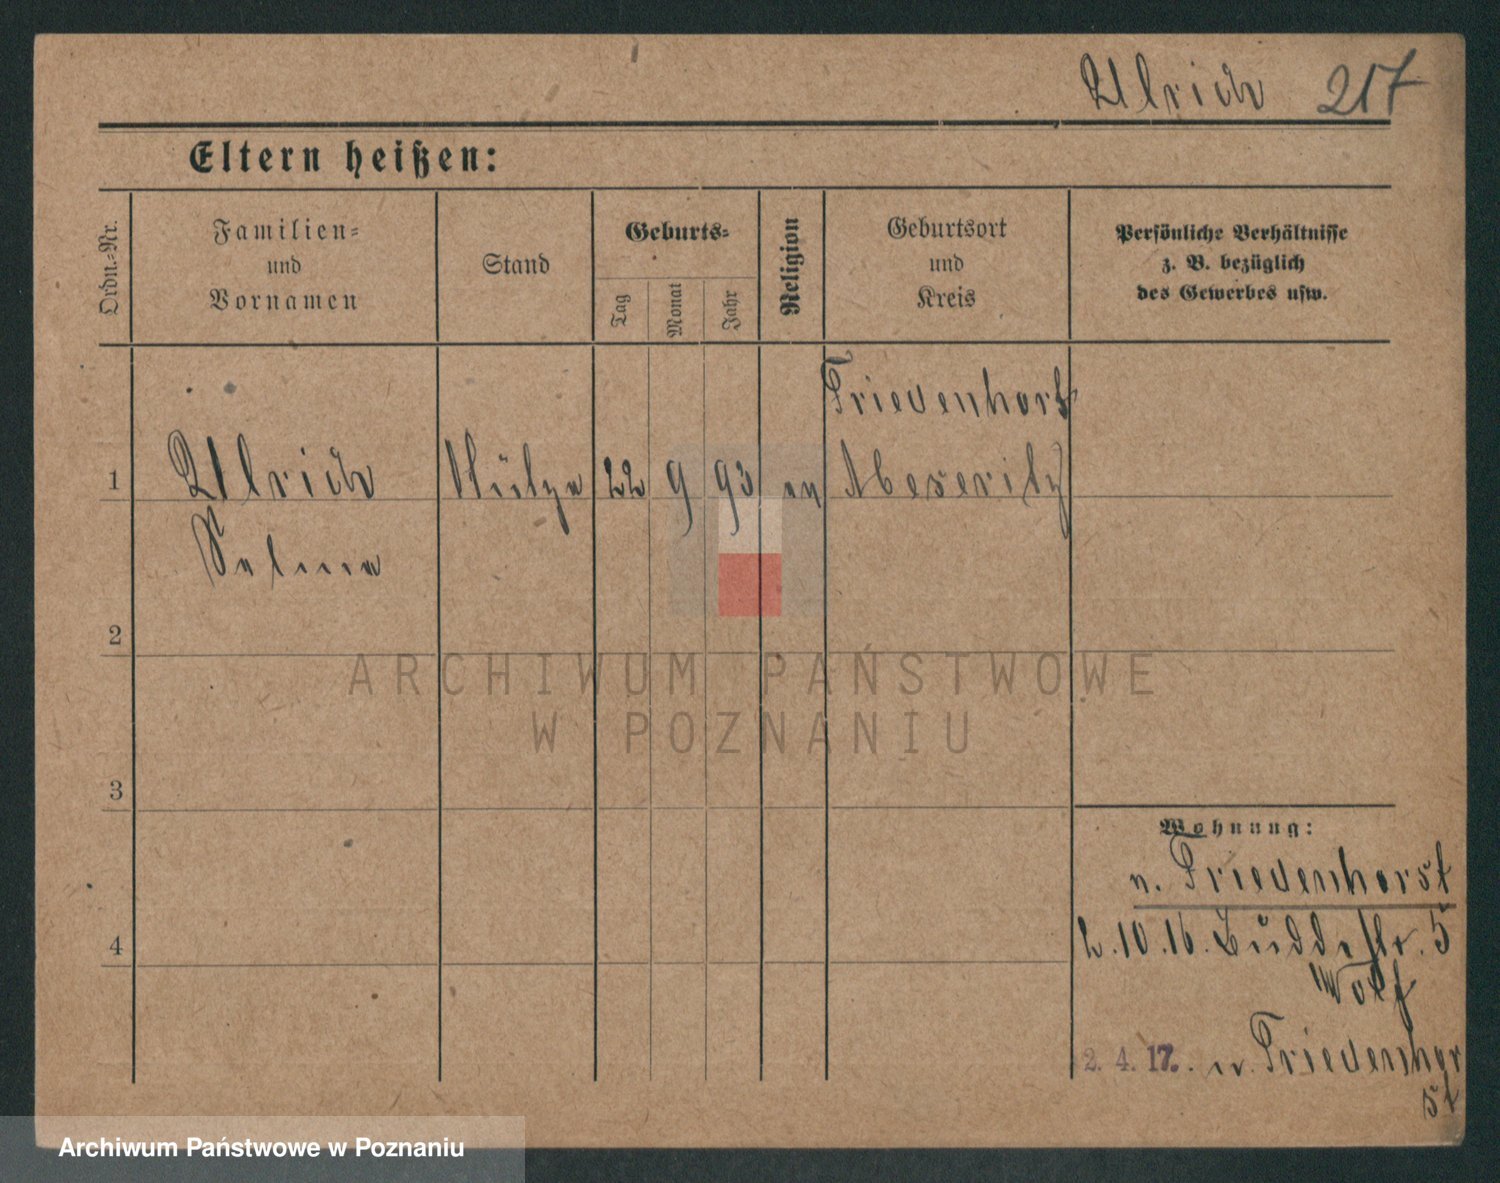 Ulrich 217
Eltern heißen:
Ordn.-Nr.
Familien-
und
Vornamen
Stand
Geburts-
Tag
Monat
Jahr
Religion
Geburtsort
und
Kreis
Persönliche Verhältnisse
z. B. bezüglich
des Gewerbes usw.
Friedenhorst
1 Ulrich Stütze 22 9 93 ev Meseritz
Selma
2
3
4
Wohnung:
n. Friedenhorst
2.10.16. Buddestr. 5
Wolf
2. 4. 17. n. Friedenhor
st
ARCHIWUM PAŃSTWOWE
W POZNANIU
Archiwum Państwowe w Poznaniu